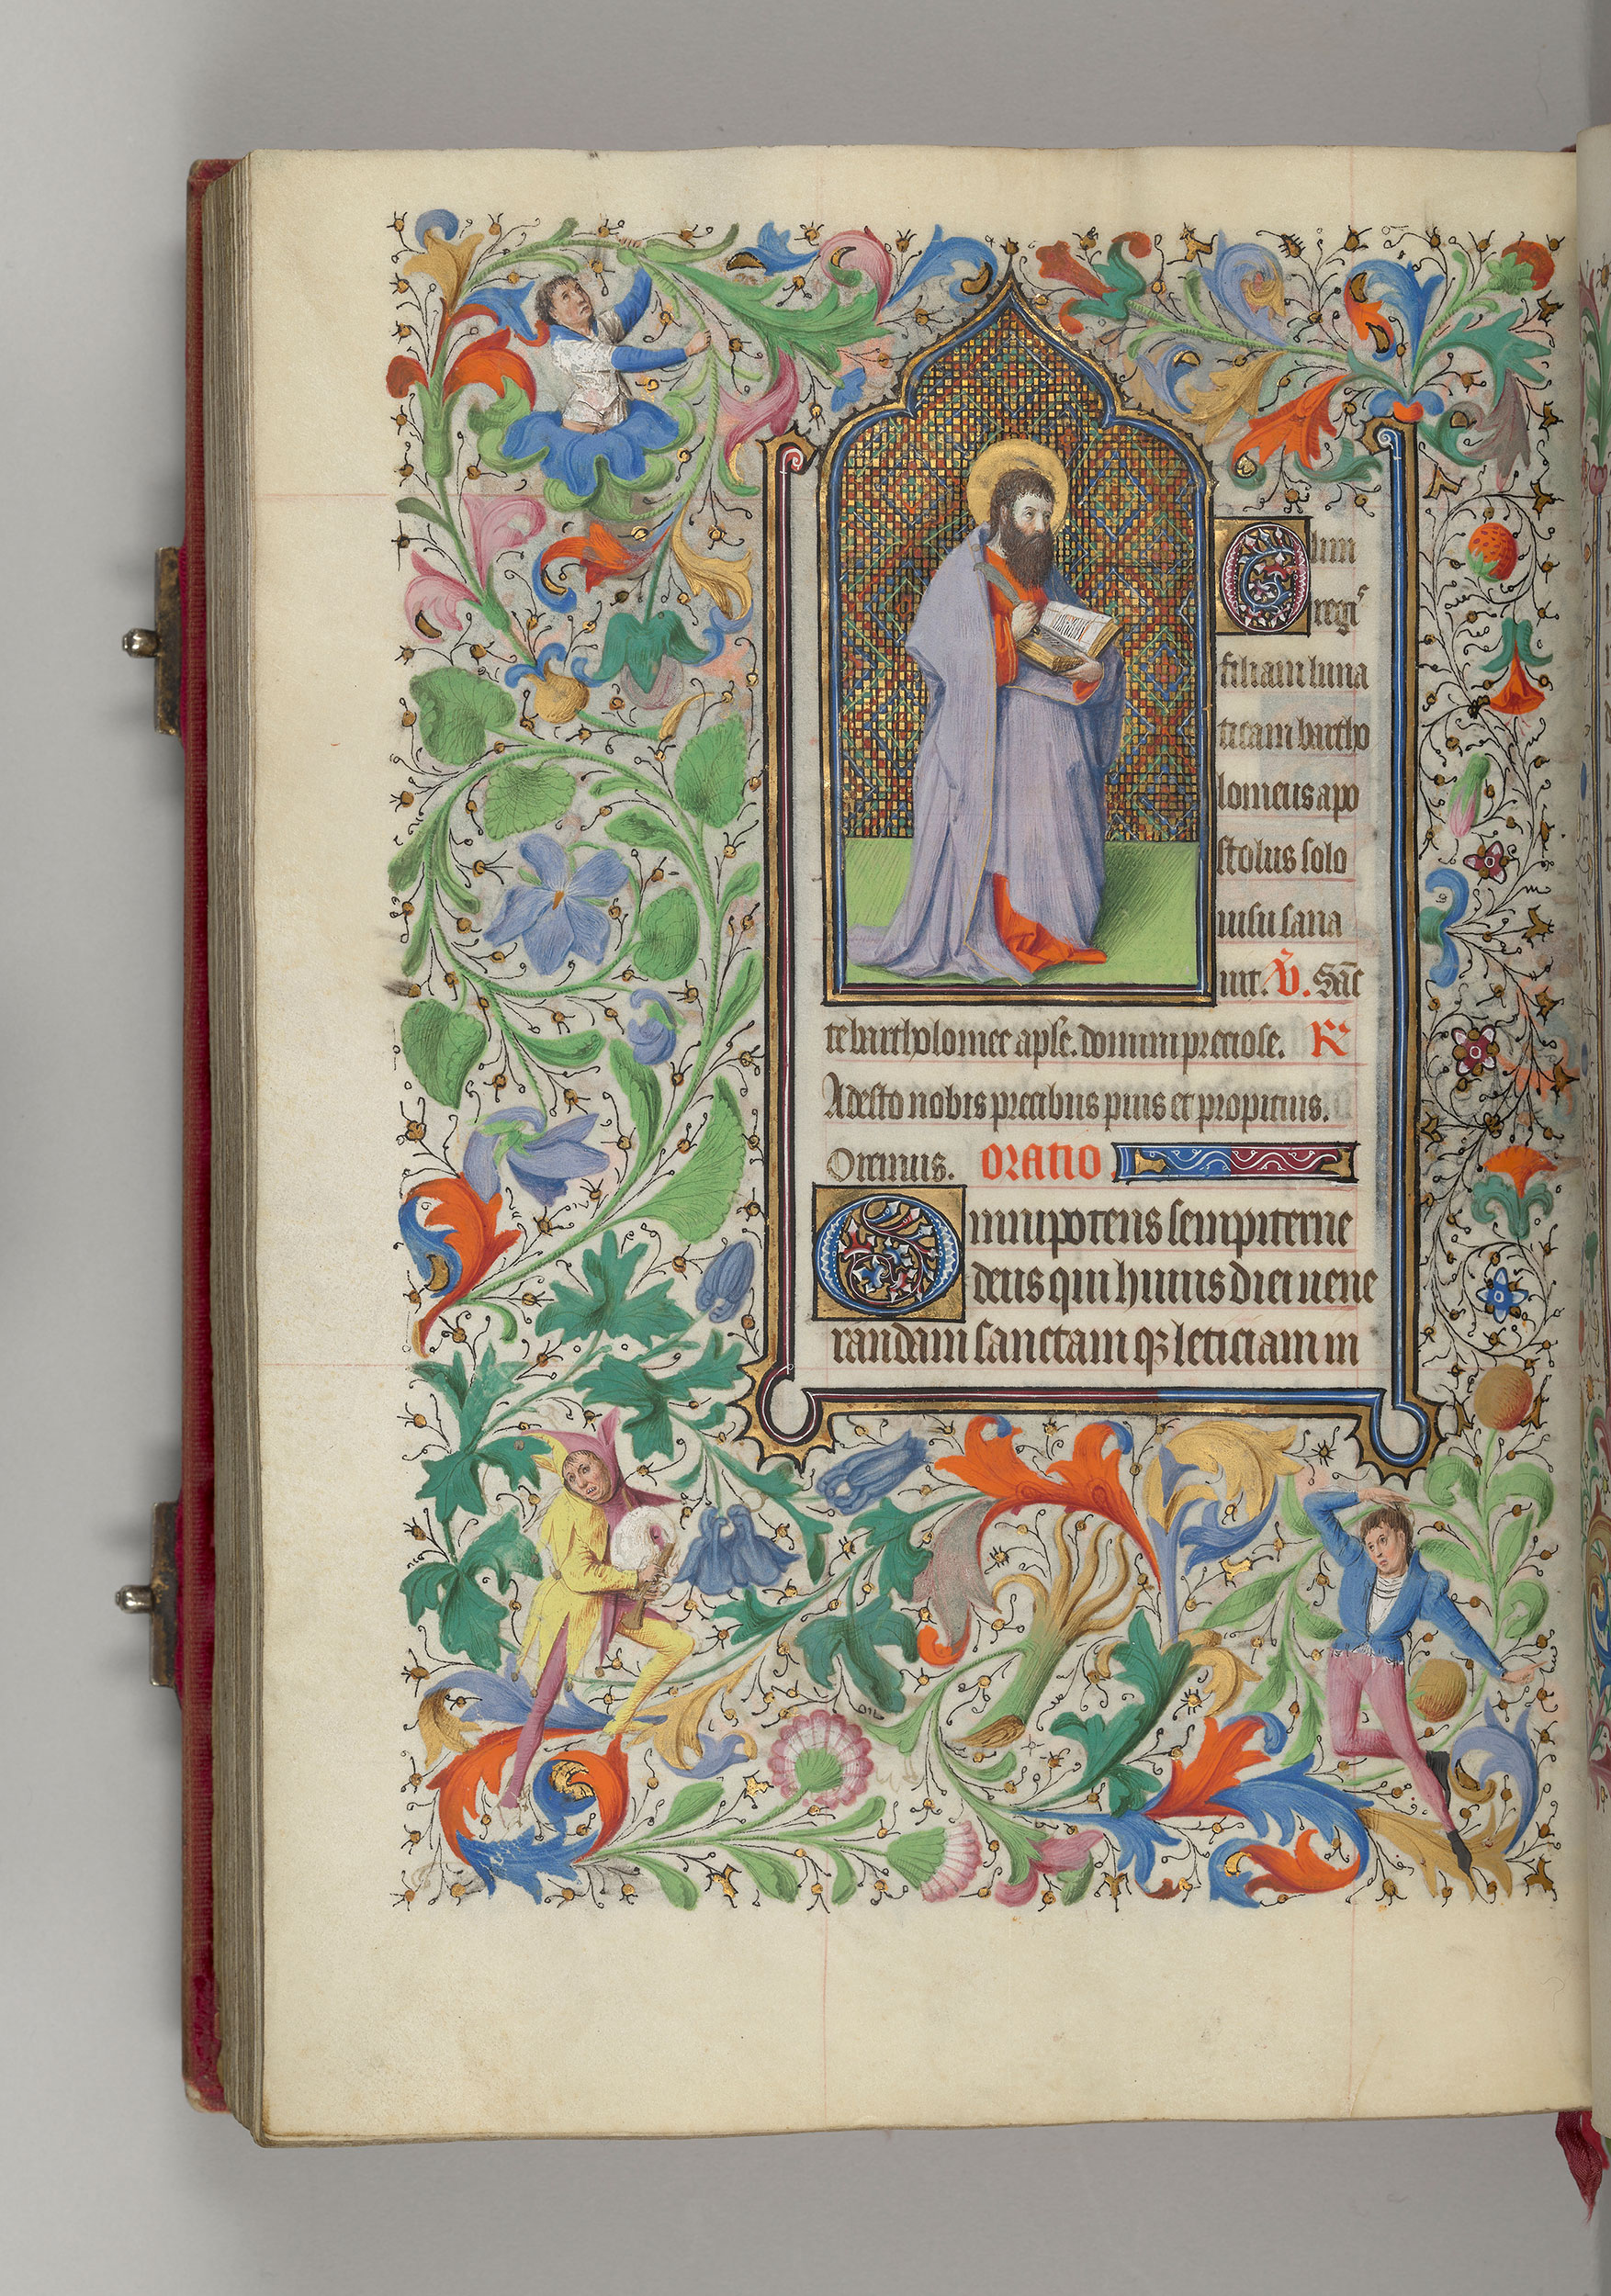 Olim
regis
filiam luna
ticam bartho
lomeus apo
stolus solo
uisu sana
uit. V̄. Sāc
te bartholomee apl̄e. domini preciose. R̄
Adesto nobis precibus piis et propitius.
Oremus. ORATIO
Omnipotens sempiterne
deus qui huius diei uene
randam sanctam qꝫ leticiam in